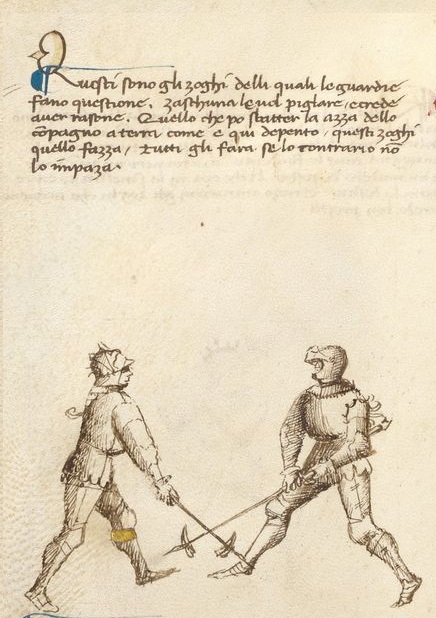 Questi sono gli zoghi delli quali le guardie
fano questione. zaschuna le vol pigliare, e crede
aver rasone. Quello che po sbatter la azza dello
cōpagno a terra come e qui depento, questi zoghi
quello fazza, tutti gli fara se lo contrario nō
lo impaza.